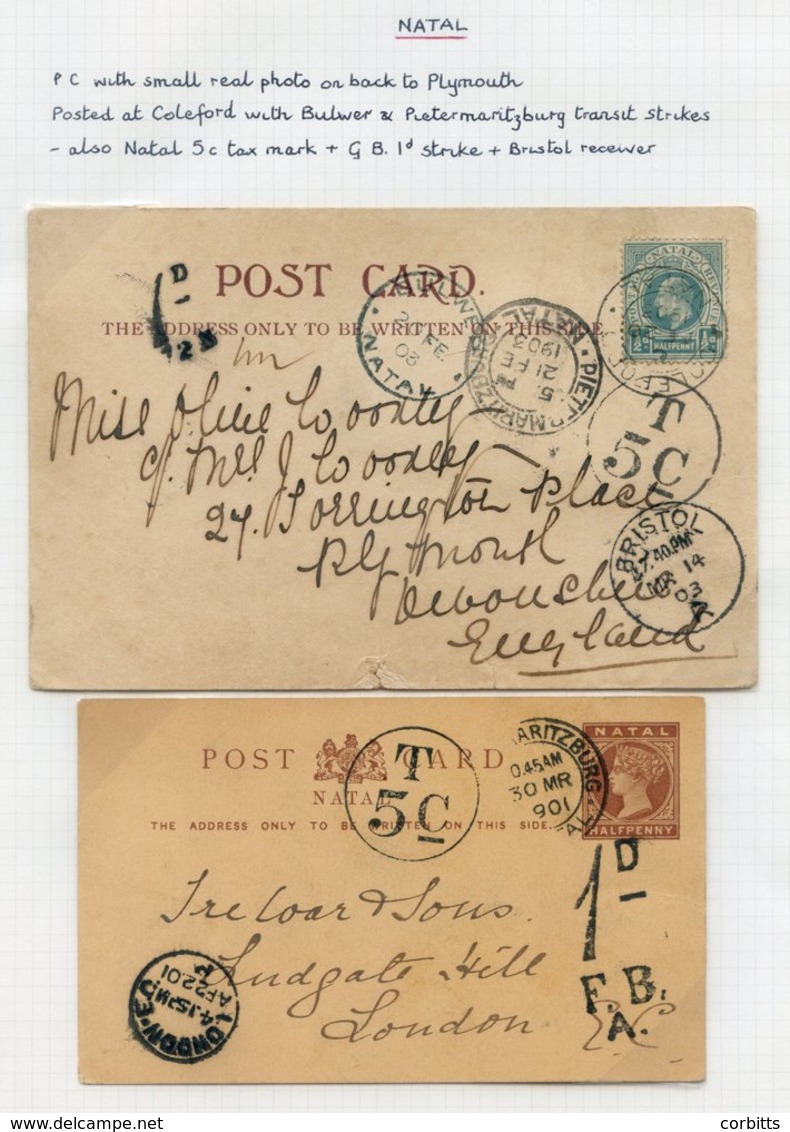 NATAL
P C with small real photo on back to Plymouth
Posted at Coleford with Bulwer & Pietermaritzburg transit strikes
- also Natal 5c tax mark + G B. 1d strike + Bristol receiver
1D
POST CARD.
THE ADDRESS ONLY TO BE WRITTEN ON THIS SIDE
BULWER
FE
03
NATAL
PIETERMARITZBURG
5. PM
21 FE
1903
NATAL
NATAL REVENUE
½d HALFPENNY ½d
COLEFORD
T
5C
Miss Olive Woodley
c/. Mrs J Woodley
27. Torrington Place
Plymouth
Devonshire
England
BRISTOL
7.40.PM
MR 14
03
A
POST CARD
NATAL
THE ADDRESS ONLY TO BE WRITTEN ON THIS SIDE.
T
5C
MARITZBURG
0.45AM
30 MR
901
NATAL
HALFPENNY
1D
F.B.
A.
Treloar & Sons.
Ludgate Hill
London E.C.
LONDON.E.C
4.15PM
AP22.01
P
corbitts